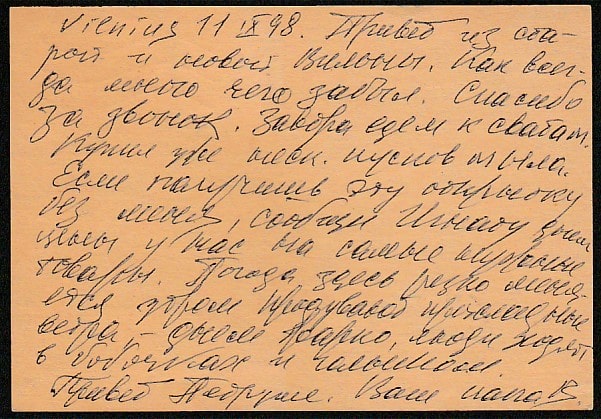 Vilnius 11 IX 98. Привет из ста-
рой и новой Вильны. Как всег-
да много чего забыл. Спасибо
за звонок. Завтра едем к сватам.
Купил уже неск. кусков мыла.
Если получишь эту открытку
без меня, сообщи Игнату
цены у нас на самые нужные
товары. Погода здесь резко меня-
ется утром продувают прохладные
ветра – днем жарко, люди ходят
в
Привет Петруше. Ваш папа